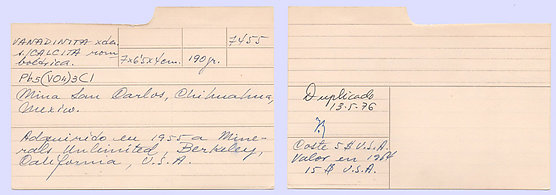 VANADINITA xda.
s/CALCITA rom-
boédrica.
7x6'5x4cm.
190gr.
7455
Pb5(VO4)3Cl
Mina San Carlos, Chihuahua,
Mexico.
Adquirido en 1955 a Mine-
rals Unlimited, Berkeley,
California, U.S.A.
Duplicado
13-5-76
Coste 5$ U.S.A.
Valor en 1964
15$ U.S.A.